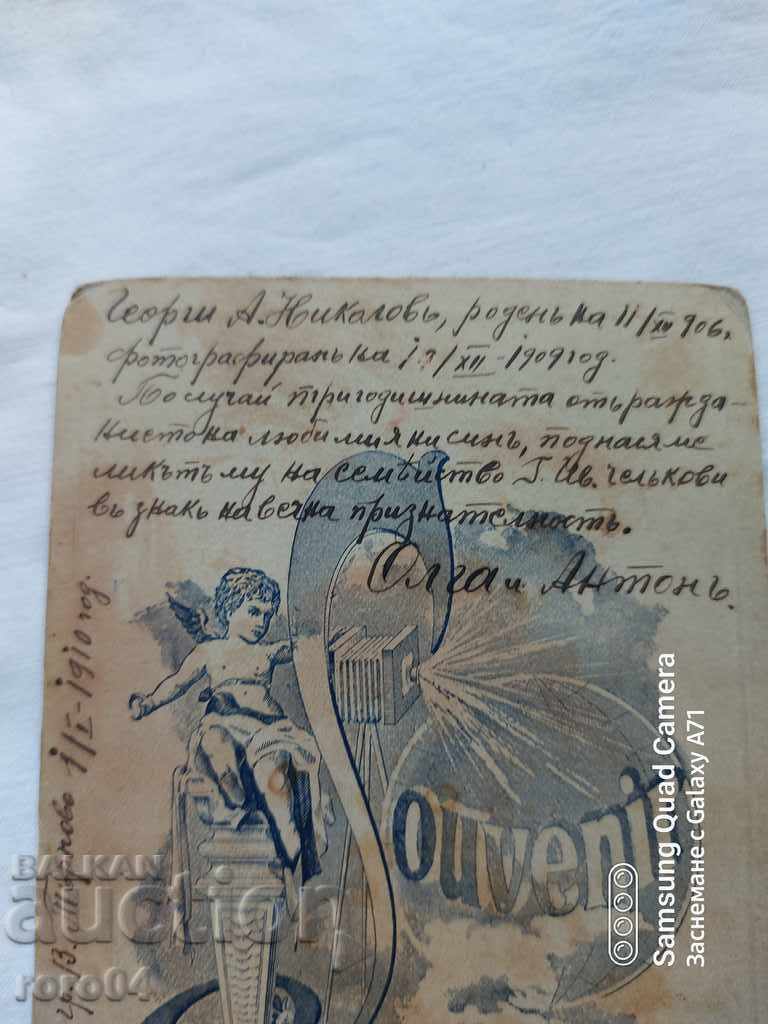 Георги А. Николовъ, роденъ на 11/XII 906 г.
фотографиранъ на 12/XII-1909 год.
По случай тригодишнината отъ ражда-
нието на любимия ни синъ, поднасяме
ликътъ му на семѣйство Г. Ив. Челькови
въ знакъ на вечна признателность.
Олга и Антонъ.
гр. В. Търново 1/I-1910 год.
Souvenir
BALKAN
auction
roro04
Samsung Quad Camera
Заснемане с Galaxy A71